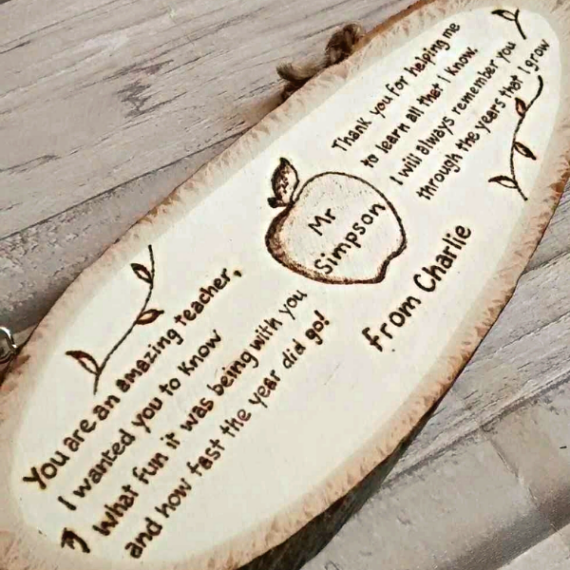 You are an amazing teacher,
I wanted you to know
What fun it was being with you
and how fast the year did go!
Mr
Simpson
Thank you for helping me
to learn all that I know.
I will always remember you
through the years that I grow
from Charlie